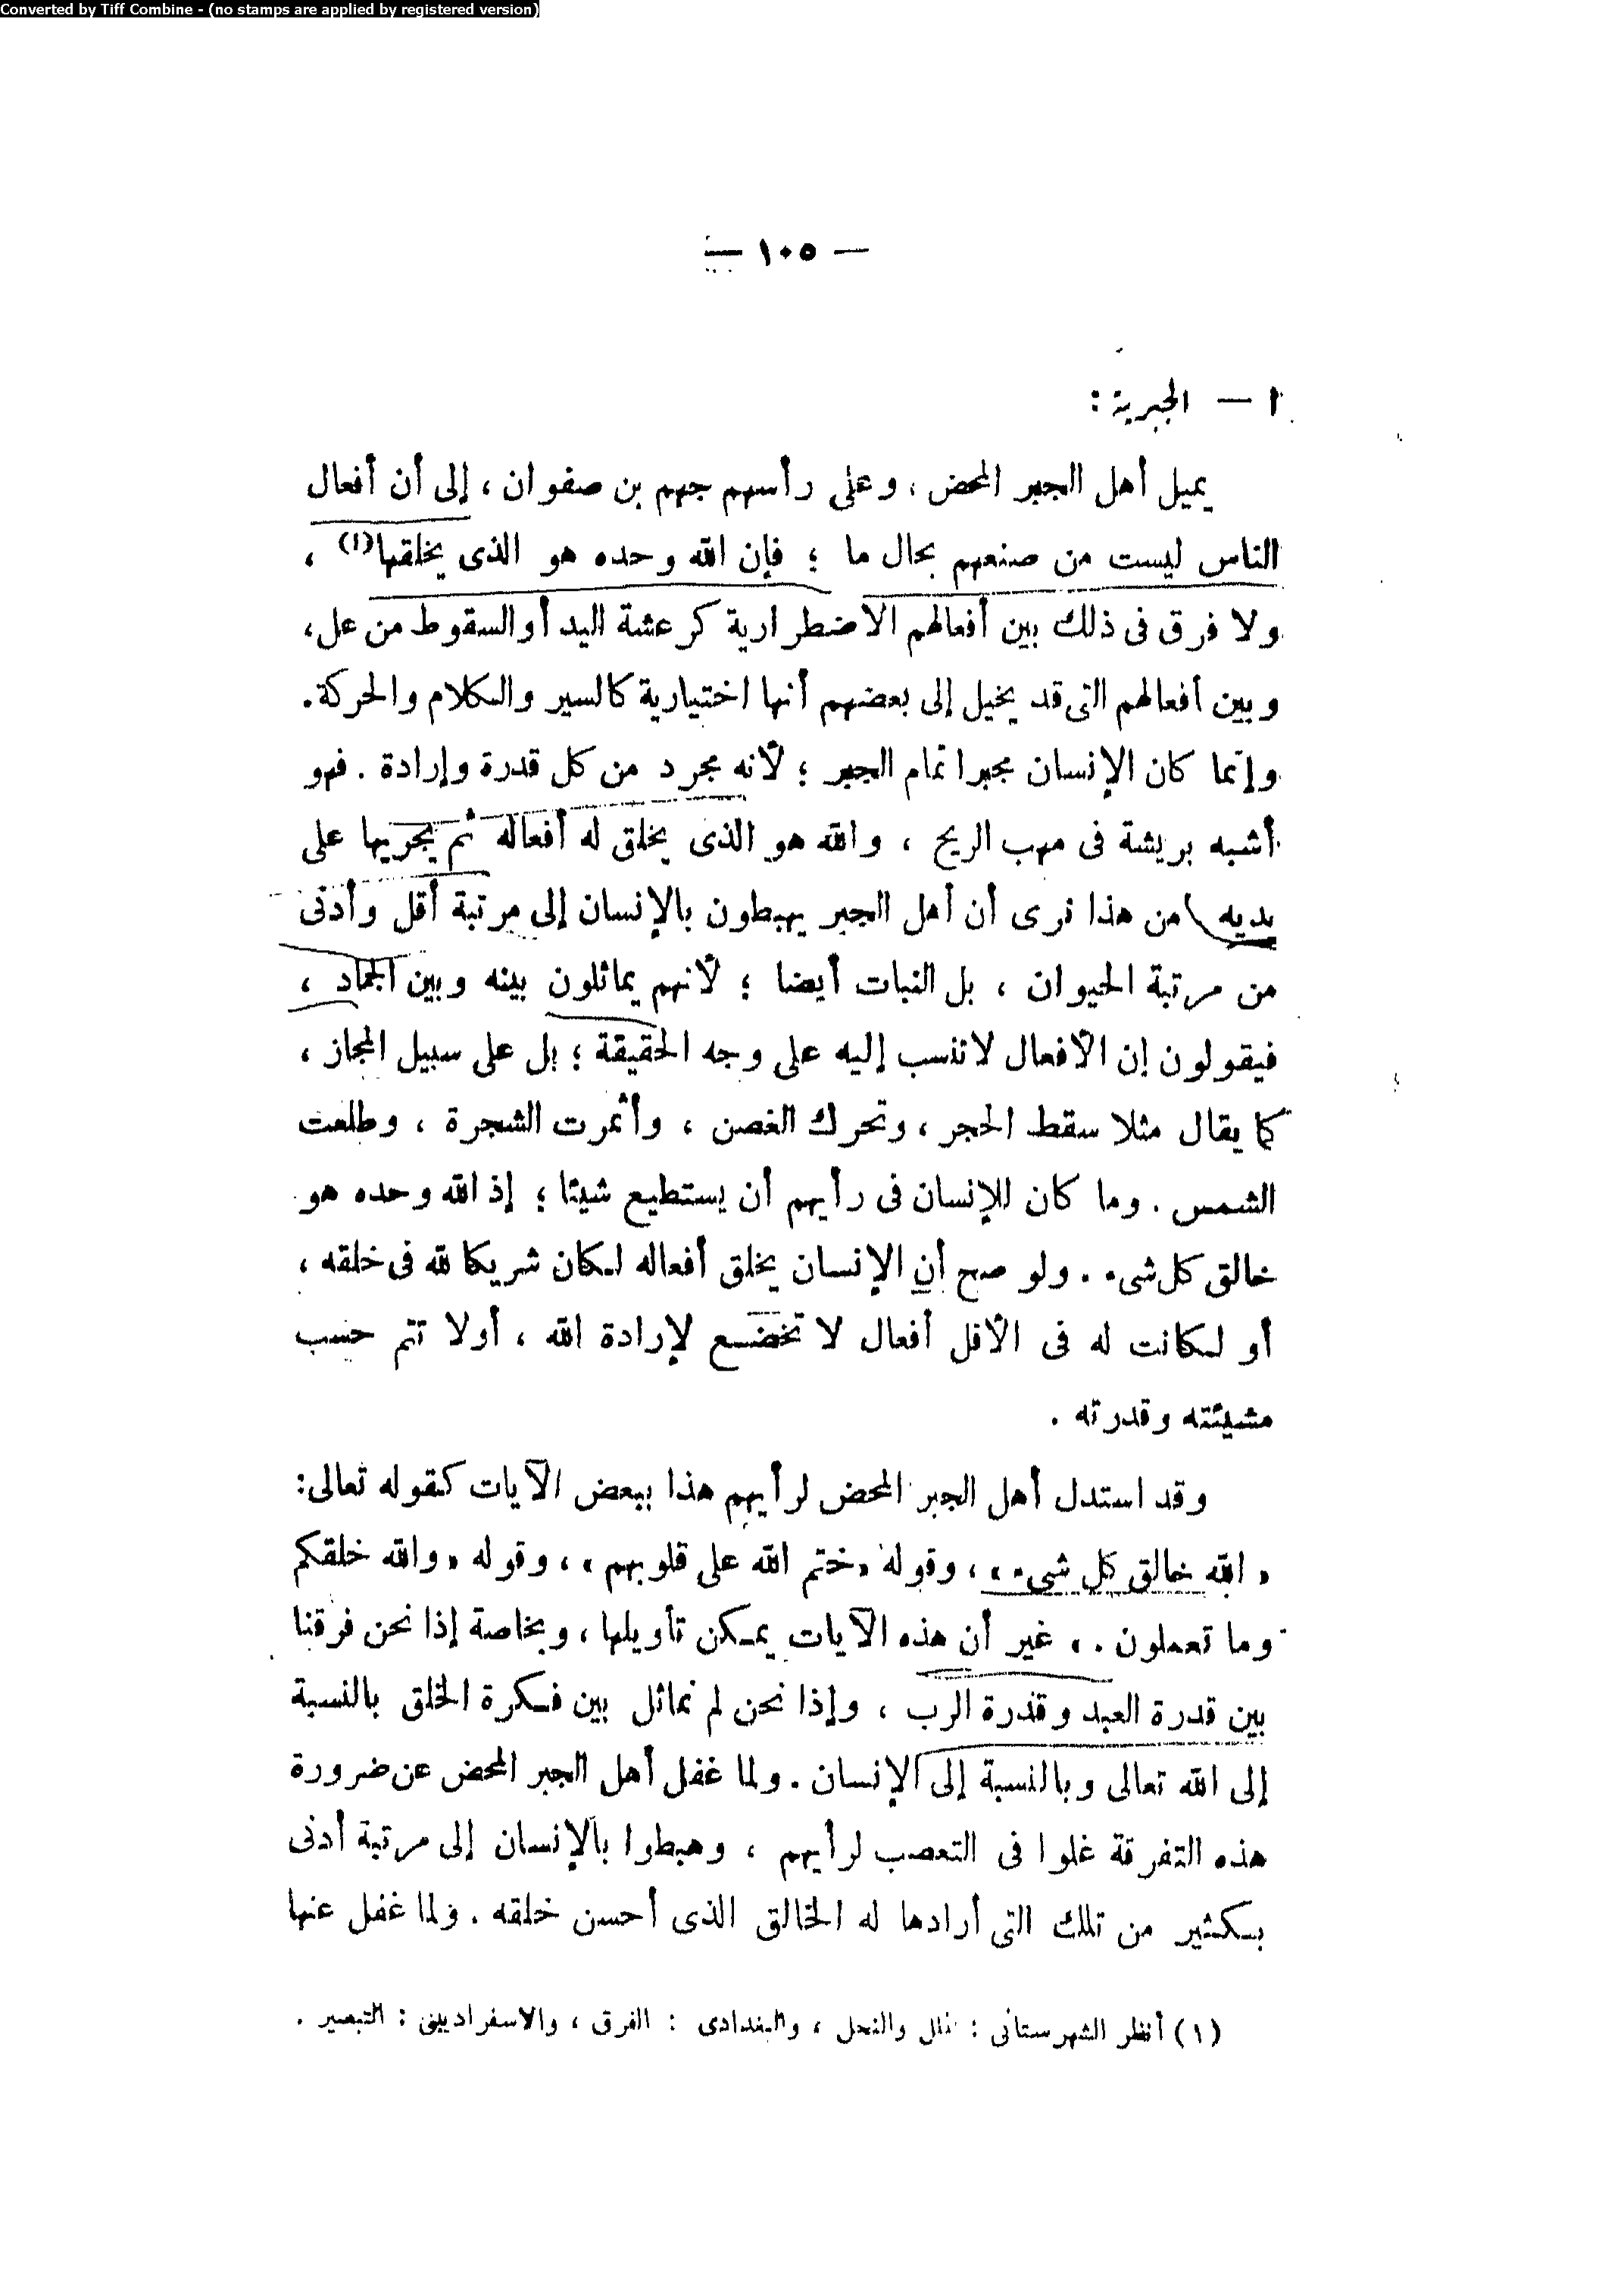 Converted by Tiff Combine - (no stamps are applied by registered version)
— ١٠٥ —
١ — الجبرية :
يميل أهل الجبر المحض ، وعلى رأسهم جهم بن صفوان ، إلى أن أفعال
الناس ليست من صنعهم بحال ما ؛ فإن الله وحده هو الذى يخلقها(١) ،
ولا فرق فى ذلك بين أفعالهم الاضطرارية كرعشة اليد أو السقوط من عل ،
وبين أفعالهم التى قد يخيل إلى بعضهم أنها اختيارية كالسير والكلام والحركة .
وإنما كان الإنسان مجبرا تمام الجبر ؛ لأنه مجرد من كل قدرة وإرادة . فهو
أشبه بريشة فى مهب الريح ، والله هو الذى يخلق له أفعاله ثم يجريها على
يديه من هذا نرى أن أهل الجبر يهبطون بالإنسان إلى مرتبة أقل وأدنى
من مرتبة الحيوان ، بل النبات أيضا ؛ لأنهم يماثلون بينه وبين الجماد ،
فيقولون إن الأفعال لا تنسب إليه على وجه الحقيقة ؛ بل على سبيل المجاز ،
كما يقال مثلا سقط الحجر ، وتحرك الغصن ، وأثمرت الشجرة ، وطلعت
الشمس . وما كان للإنسان فى رأيهم أن يستطيع شيئا ؛ إذ الله وحده هو
خالق كل شىء . ولو صح أن الإنسان يخلق أفعاله لكان شريكا لله فى خلقه ،
أو لكانت له فى الأقل أفعال لا تخضع لإرادة الله ، أولا تتم حسب
مشيئته وقدرته .
وقد استدل أهل الجبر المحض لرأيهم هذا ببعض الآيات كقوله تعالى :
« الله خالق كل شىء » ، وقوله « ختم الله على قلوبهم » ، وقوله « والله خلقكم
وما تعملون . » غير أن هذه الآيات يمكن تأويلها ، وبخاصة إذا نحن فرقنا
بين قدرة العبد وقدرة الرب ، وإذا نحن لم نماثل بين فكرة الخلق بالنسبة
إلى الله تعالى وبالنسبة إلى الإنسان . ولما غفل أهل الجبر المحض عن ضرورة
هذه التفرقة غلوا فى التعصب لرأيهم ، وهبطوا بالإنسان إلى مرتبة أدنى
بكثير من تلك التى أرادها له الخالق الذى أحسن خلقه . ولما غفل عنها
(١) أنظر الشهرستانى : والنحل ، والبغدادى : الفرق ، والاسفرايينى : التبصير .